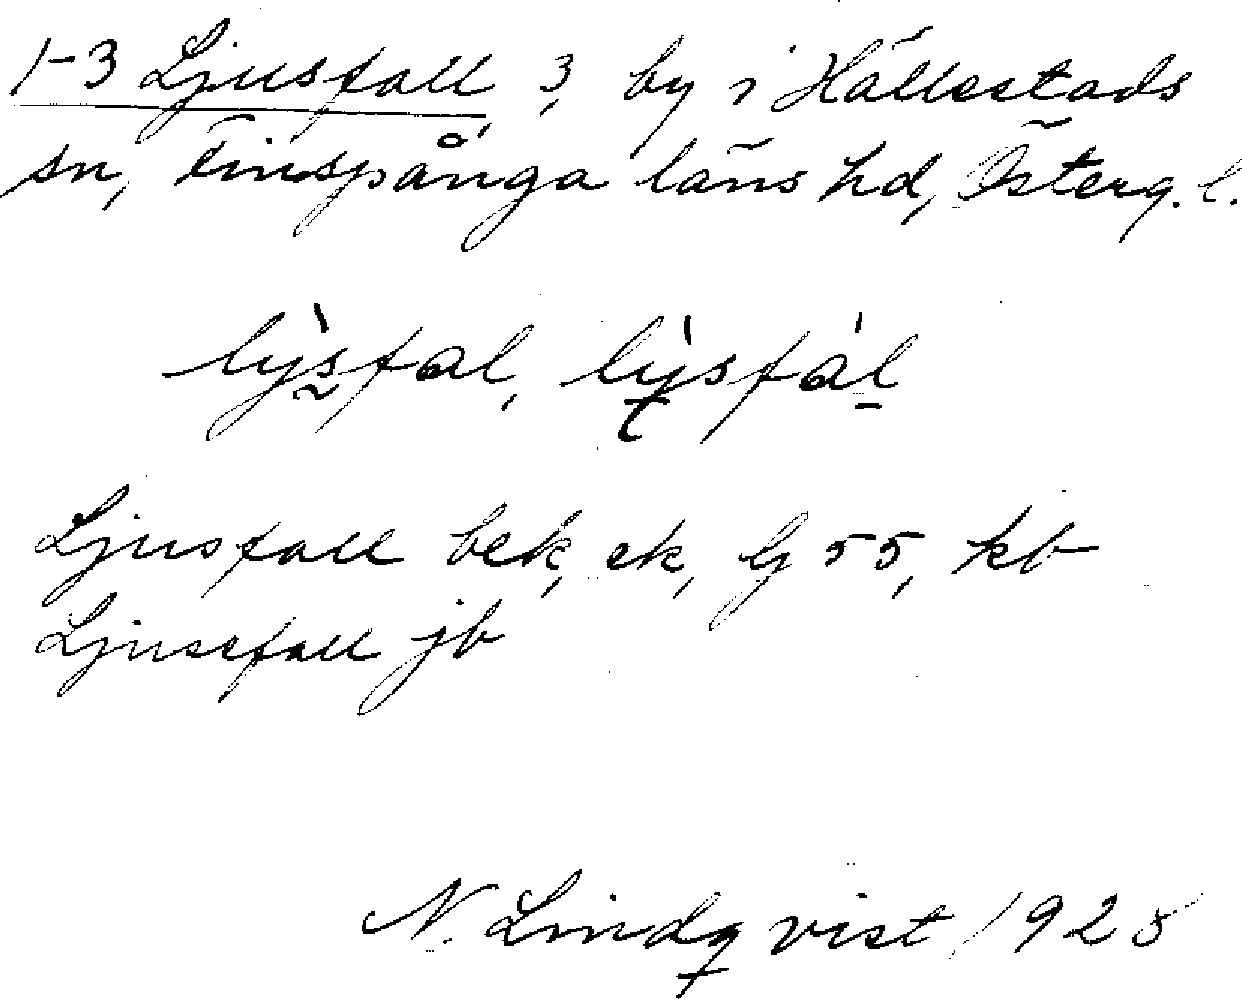 1-3 Ljusfall, 3, by i Hällestads
sn, Finspånga läns hd, Österg. l.
lỳsfal, lỳsfál
Ljusfall bek, ek, Gj 55, kb
Ljusefall jb
N. Lindqvist 1925